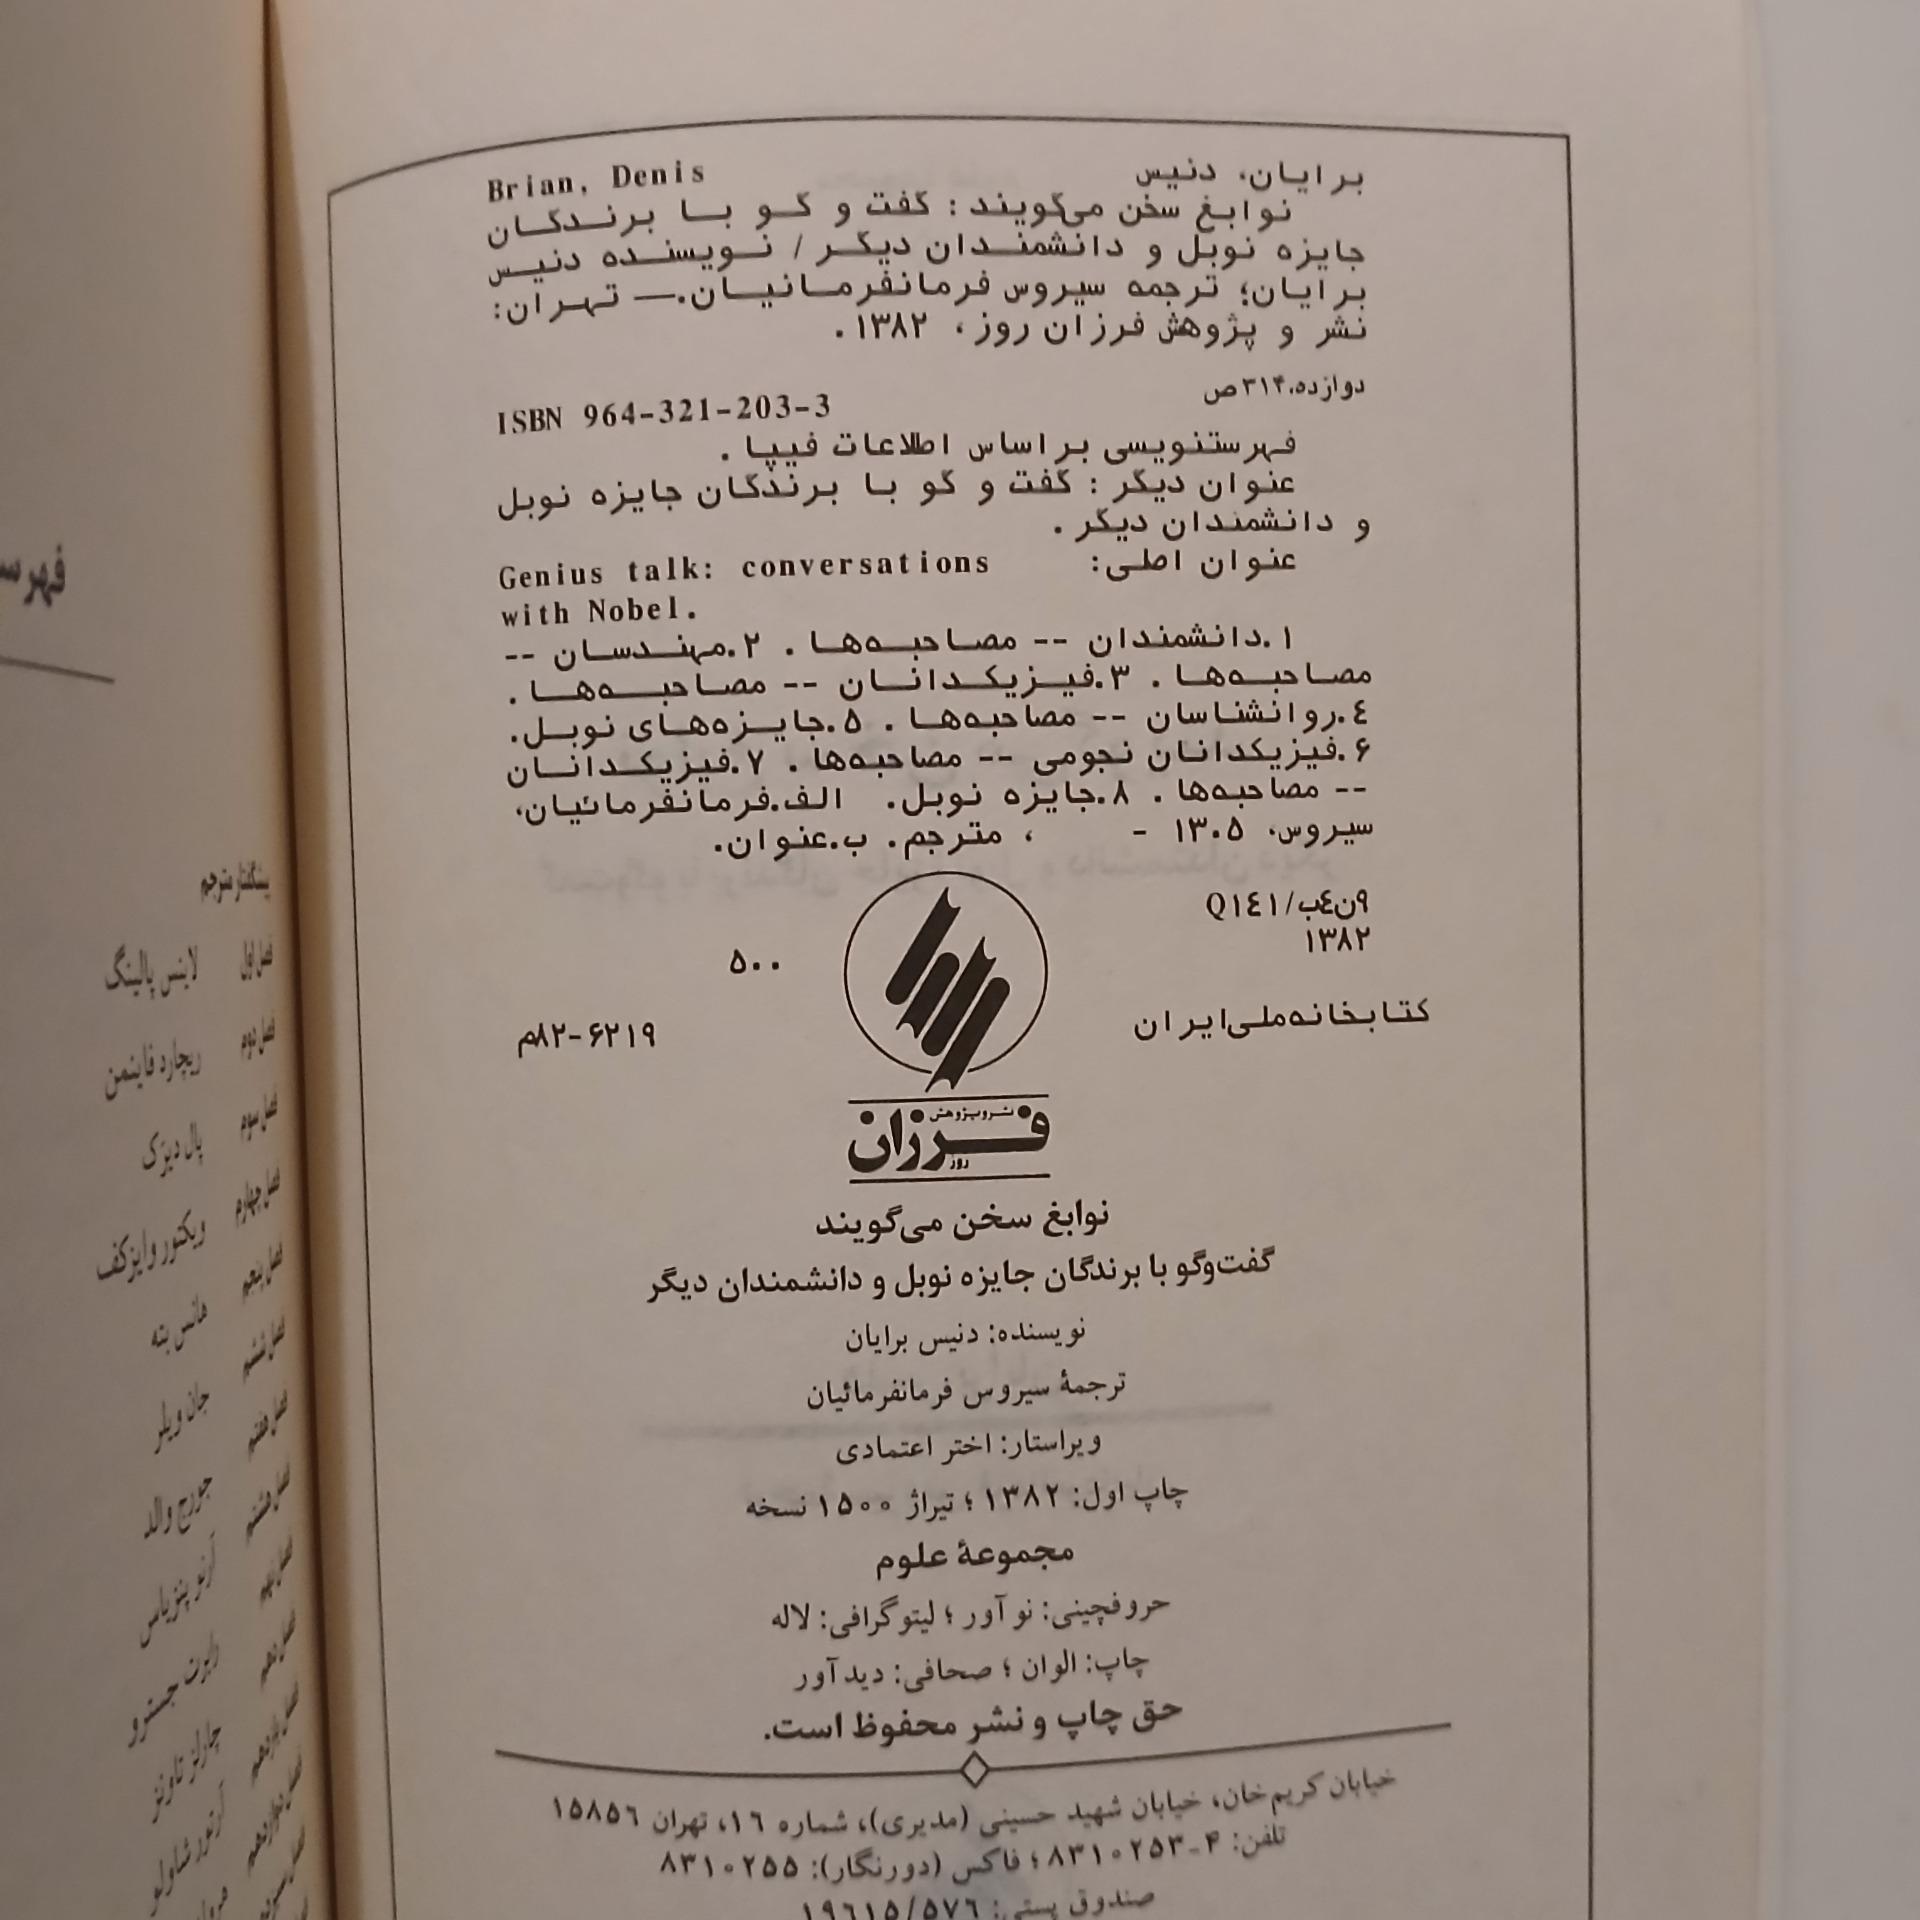 برایان، دنیس Brian, Denis
نوابغ سخن می‌گویند : گفت و گو با برندگان
جایزه نوبل و دانشمندان دیگر / نویسنده دنیس
برایان؛ ترجمه سیروس فرمانفرمانیان.— تهران:
نشر و پژوهش فرزان روز، ۱۳۸۲.
دوازده،۳۱۴ص
ISBN 964-321-203-3
فهرستنویسی براساس اطلاعات فیپا .
عنوان دیگر : گفت و گو با برندگان جایزه نوبل
و دانشمندان دیگر .
عنوان اصلی: Genius talk: conversations
with Nobel.
۱.دانشمندان -- مصاحبه‌ها . ۲.مهندسان --
مصاحبه‌ها . ۳.فیزیکدانان -- مصاحبه‌ها .
٤.روانشناسان -- مصاحبه‌ها . ۵.جایزه‌های نوبل.
۶.فیزیکدانان نجومی -- مصاحبه‌ها . ۷.فیزیکدانان
-- مصاحبه‌ها . ۸.جایزه نوبل. الف.فرمانفرمائیان،
سیروس، ۱۳۰۵ - ، مترجم. ب.عنوان.
۹ن٤ب/Q۱٤۱
۱۳۸۲
۵۰۰
کتابخانه‌ملی‌ایران
۸۲-۶۲۱۹م
نشر و پژوهش
فرزان
روز
نوابغ سخن می‌گویند
گفت‌وگو با برندگان جایزه نوبل و دانشمندان دیگر
نویسنده: دنیس برایان
ترجمهٔ سیروس فرمانفرمائیان
ویراستار: اختر اعتمادی
چاپ اول: ۱۳۸۲؛ تیراژ ۱۵۰۰ نسخه
مجموعهٔ علوم
حروفچینی: نوآور؛ لیتوگرافی: لاله
چاپ: الوان؛ صحافی: دیدآور
حق چاپ و نشر محفوظ است.
خیابان کریم‌خان، خیابان شهید حسینی (مدیری)، شماره ۱۶، تهران ۱۵۸۵۶
تلفن: ۴-۸۳۱۰۲۵۳؛ فاکس (دورنگار): ۸۳۱۰۲۵۵
صندوق پستی: ۱۹۶۱۵/۵۷۶
پیشگفتار مترجم
فصل اول لاینس پالینگ
فصل دوم ریچارد فاینمن
فصل سوم پال دیرک
فصل چهارم ویکتور وایزکف
فصل پنجم هانس بته
فصل ششم جان ویلر
فصل هفتم جورج والد
فصل هشتم آرنو پنزیاس
فصل نهم رابرت جسترو
فصل دهم چارلز تاونز
فصل یازدهم آرتور شاولو
فصل دوازدهم